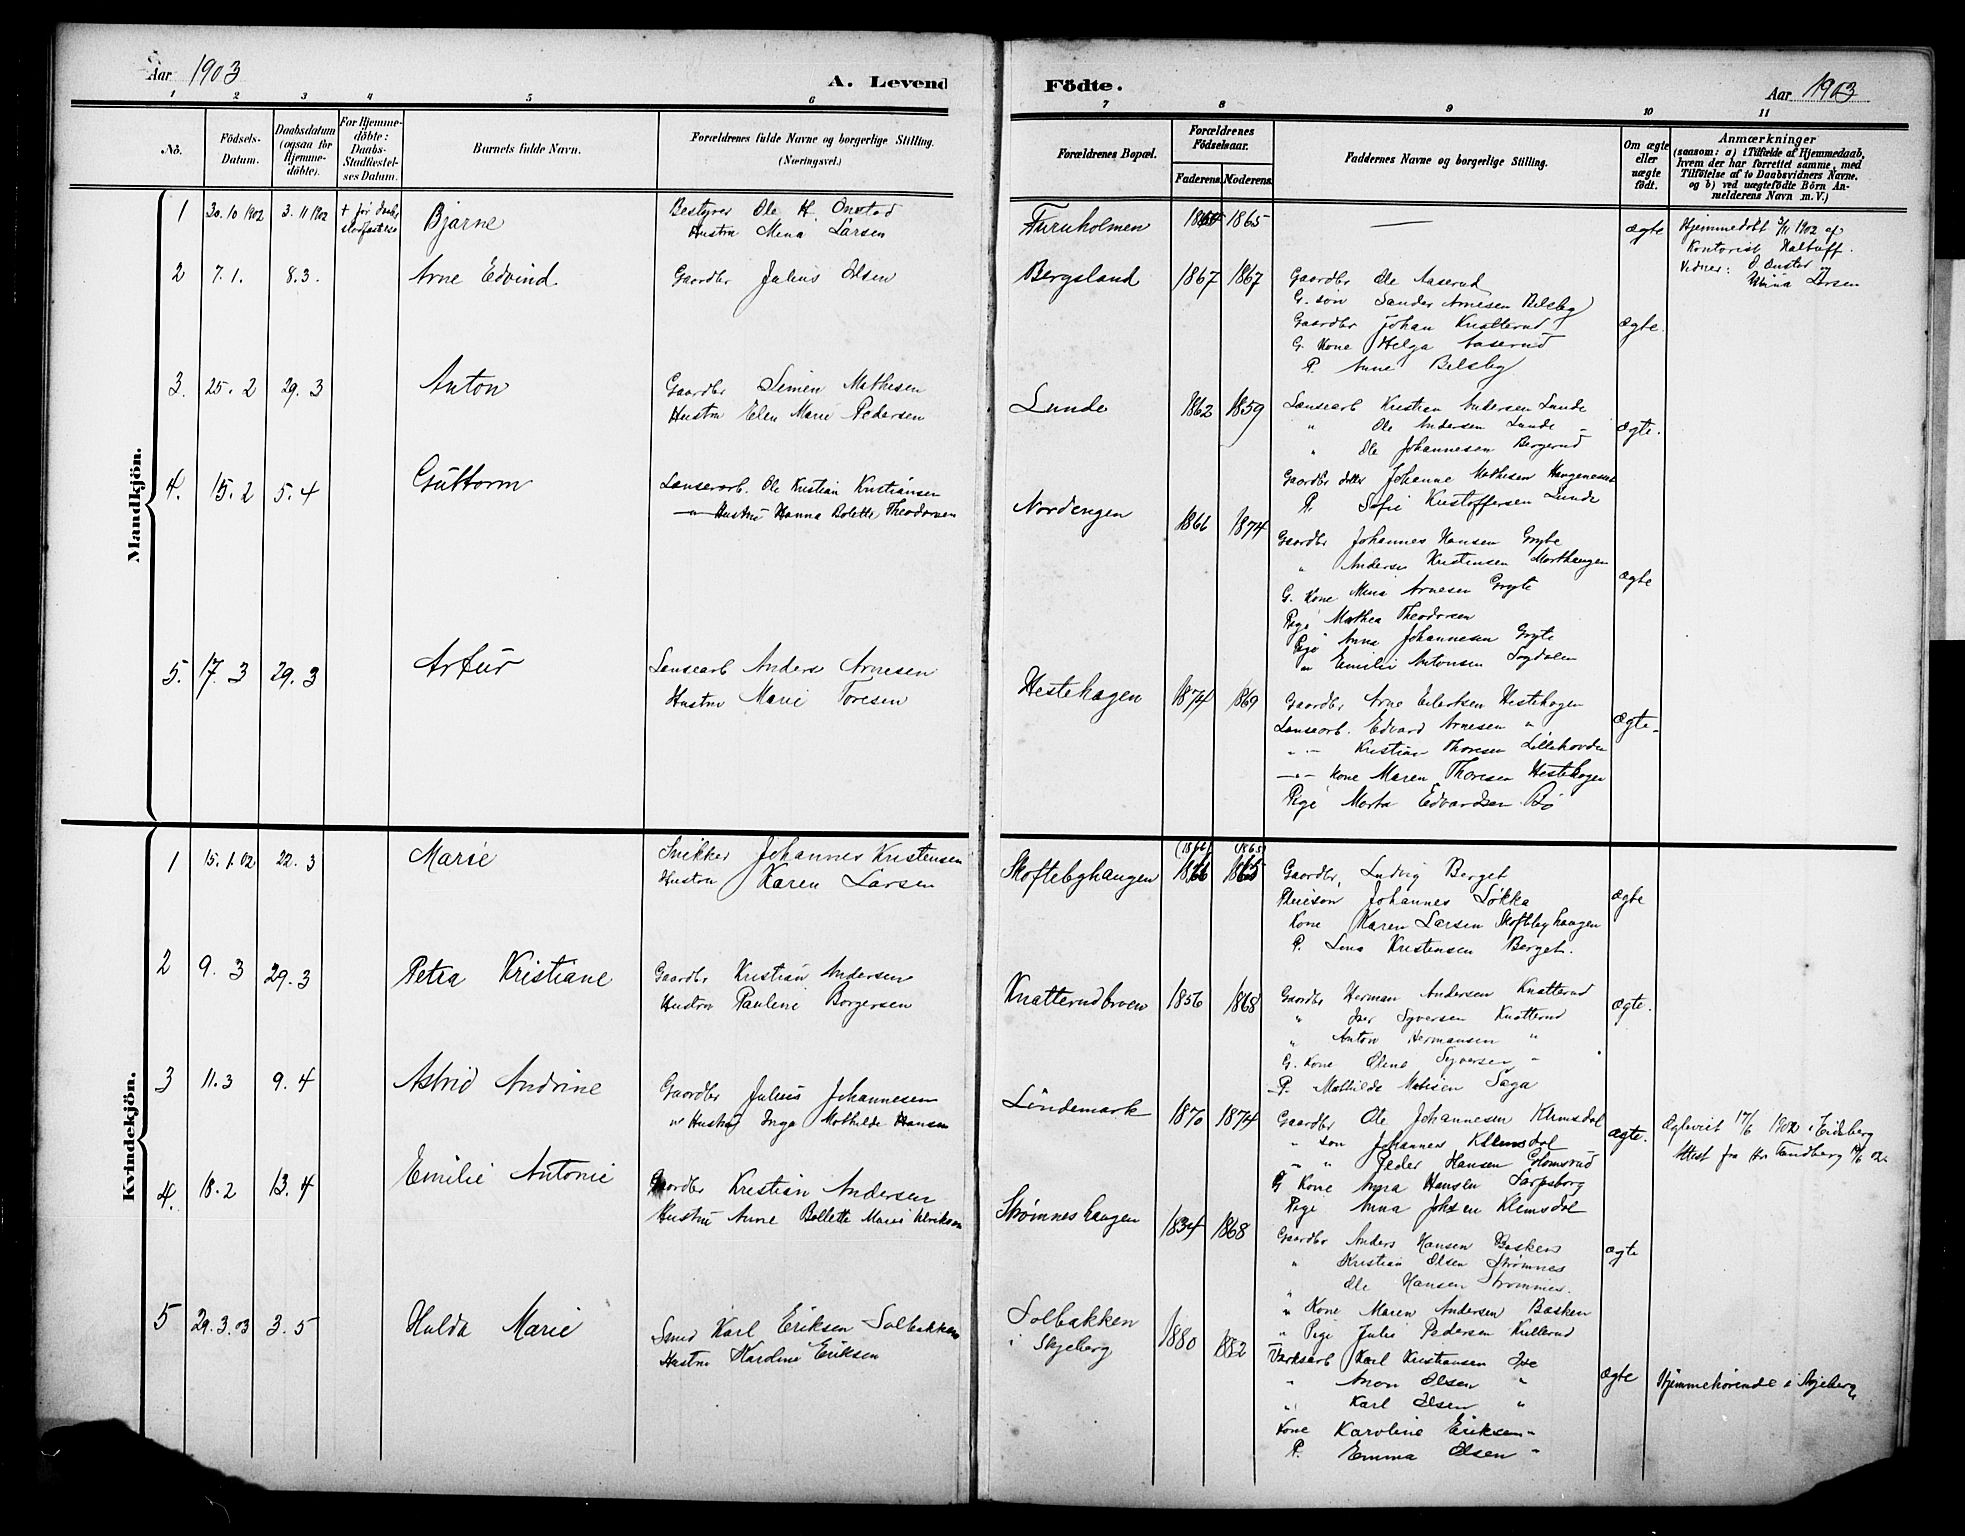 Aar 1903
A. Levend Födte.
Aar 1903
1 2 3 4 5 6 7 8 9 10 11
No.
Födsels-Datum.
Daabsdatum (ogsaa for Hjemme-döbte).
For Hjemme-döbte: Daabs-Stadfæstel-ses Datum.
Barnets fulde Navn.
Forældrenes fulde Navne og borgerlige Stilling.
(Næringsvei.)
Forældrenes Bopæl.
Forældrenes Födselsaar.
Faderens. Moderens.
Faddernes Navne og borgerlige Stilling.
Om ægte eller uægte födt.
Anmærkninger
(saasom: a) i Tilfælde af Hjemmedaab,
hvem der har forrettet samme, med
Tilföielse af to Daabsvidners Navne.
og b) ved uægtefödte Börn An-
melderens Navn m. V.)
Mandkjön.
1 30.10 1902 3.11 1902 + før daabs stadfæstelse Bjarne
Bestyrer Ole H. Onstad
Hustru Mina Larsen
Furuholmen 1865 — ægte
Hjemmedøbt 3/11 1902 af
Kontorist
Vidner: O. Onstad
Mina Larsen
2 7.1. 8.3. Arne Edvind
Gaardbr Julius Olsen
Bergsland 1867 1867
Gaardbr Ole Aaserud
G. søn Sander Arnesen Bilsby
Gaardbr Johan Knatterud
G. Kone Helga Aaserud
P. Anne Bilsby
ægte.
3. 25.2 29.3 Anton
Gaardbr Simen Mathesen
Hustru Elen Marie Pedersen
Lunde 1862 1859
Lausearb Kristian Andersen Lunde
" Ole Andersen Lunde
" Ole Johannesen Bergerud
Gaardbr datter Johanne Mathesen
P. Sofie Kristoffersen Lunde
ægte.
4. 15.2 5.4 Guttorm
Lausearb. Ole Kristian Kristiansen
—"— Hustru Hanna Bolette Theodorsen
Nordengen 1866 1874
Gaardbr Johannes Hansen Gryte
" Anders Kristensen Morthaugen
G. Kone Mina Arnesen Gryte
Pige Mathea Theodorsen
Pige Anna Johannesen Gryte
" Emilie Antonsen Sogdalen
ægte
5. 17.3 29.3 Artur
Lausearb Anders Arnesen
Hustru Marie Toresen
Hestehagen 1874 1869
Gaardbr Arne Eilertsen Hestehagen
Lausearb. Edvard Arnesen "
—"— Kristian Thoresen Lillehovde
—"— Kone Maren Thoresen Hestehagen
Pige Marta Edvardsen Bø
ægte.
Kvindekjön.
1 15.1.02 22.3 Marie
Snikker Johannes Kristensen
Hustru Karen Larsen
Skoftebyhaugen (1866) 1866 (1865) 1865
Gaardbr. Ludvig Berget
Johannes Løkka
Kone Karen Larsen Skoftebyhaugen
P. Lina Kristensen Berget.
ægte
2 9.3 29.3 Petra Kristiane
Gaardbr Kristian Andersen
Hustru Pauline Borgersen
Knatterudbroen 1856 1868
Gaardbr Herman Andersen Knatterud
" Iver Syversen Knatterud
" Anton Hermansen "
G. Kone Oline Syversen "
P. Mathilde Matisen Saga
ægte.
3 11.3 9.4 Astrid Andrine
Gaardbr Julius Johannesen
" Hustru Inga Mathilde Hansen
Lindemark 1870 1874
Gaardbr Ole Johannesen Klemsdal
" søn Johannes Klemsdal
" " Peder Hansen Glomsrud
G Kone Anna Hansen Sarpsborg
Pige Anna Johsen Klemsdal
ægte.
Ægteviet 17/6 1902 i Eidsberg
Attest fra Hr. Tandberg 02.
4. 18.2 13.4 Emilie Antonie
Gaardbr Kristian Andersen
Hustru Anne Bollette Marie Ulriksen
Strømneshaugen 1834 1868
Gaardbr Anders Hansen Basken
" Kristian Olsen Strømnes
" Ole Hansen Strømnes.
" Kone Maren Andersen Basken
" Pige Julie Pedersen Killerud
ægte
5 29.3.03 3.5 Hulda Marie
Smed Karl Eriksen Solbakken
Hustru Karoline Eriksen
Solbakken
i Skjeberg
1880 1882
Værksarb Karl Kristiansen Ise
" Anon Olsen "
" Karl Olsen "
Kone Karoline Eriksen "
P. Emma Olsen "
ægte
Hjemmehørende i Skjeberg